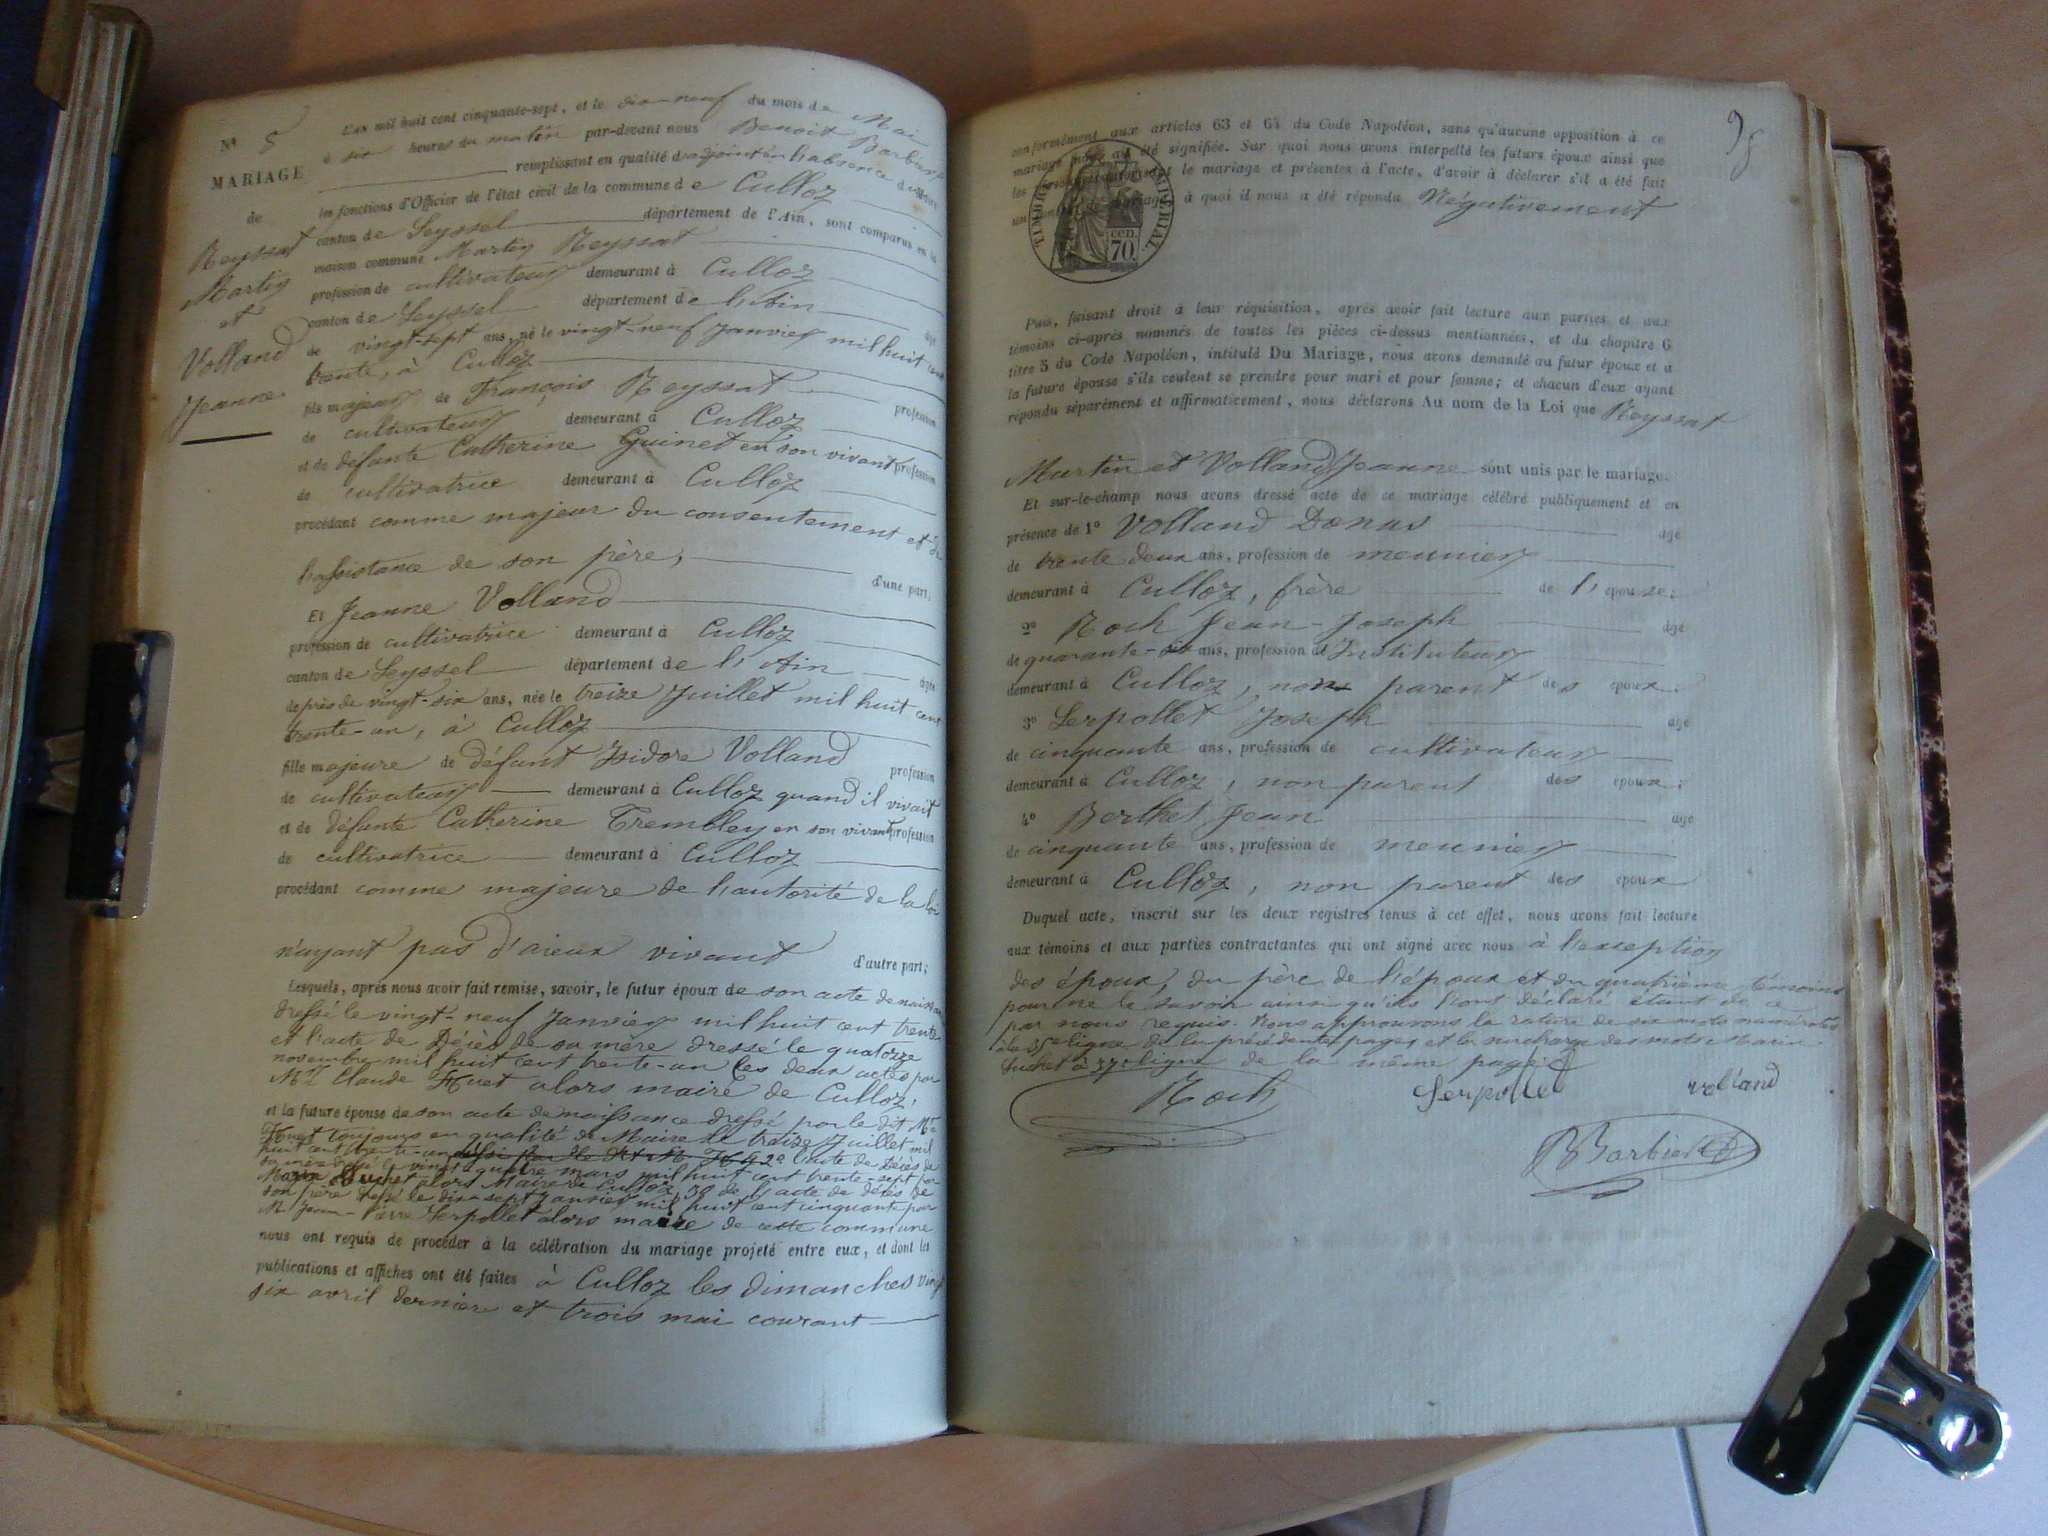 N° 5
MARIAGE
de
Reyssat
Martin
et
Volland
Jeanne
L'an mil huit cent cinquante-sept, et le dix-neuf du mois de Mai
à six heures du matin par-devant nous Benoit Barbier
remplissant en qualité d'adjoint en l'absence du Maire
les fonctions d'Officier de l'état civil de la commune de Culloz
canton de Seyssel département de l'Ain, sont comparus en la
maison commune Martin Reyssat
profession de cultivateur demeurant à Culloz
canton de Seyssel département de l'Ain âgé
de vingt-sept ans, né le vingt-neuf Janvier mil huit cent
trente, à Culloz
fils majeur de François Reyssat profession
de cultivateur demeurant à Culloz
et de défunte Catherine Guinet en son vivant profession
de cultivatrice demeurant à Culloz
procédant comme majeur du consentement et de
l'assistance de son père, d'une part;
Et Jeanne Volland
profession de cultivatrice demeurant à Culloz
canton de Seyssel département de l'Ain âgée
de près de vingt-six ans, née le treize Juillet mil huit cent
trente-un, à Culloz
fille majeure de défunt Isidore Volland profession
de cultivateur demeurant à Culloz quand il vivait
et de défunte Catherine Trembley en son vivant profession
de cultivatrice demeurant à Culloz
procédant comme majeure de l'autorité de la loi
n'ayant pas d'aieux vivant d'autre part;
Lesquels, après nous avoir fait remise, savoir, le futur époux de son acte de naissance
dressé le vingt-neuf Janvier mil huit cent trente
et l'acte de Décès de sa mère dressé le quatorze
novembre mil huit cent trente-un les deux actes par
Mr Claude Huet alors maire de Culloz,
et la future épouse de son acte de naissance dressé par le dit Mr
Huet toujours en qualité de Maire le treize Juillet mil
huit cent trente-un 2° l'acte de Décès de
sa mère dressé le vingt-quatre mars mil huit cent trente-sept par
Marin Suchet alors Maire de Culloz, 3° de l'acte de décès de
son père dressé le dix-sept Janvier mil huit cent cinquante par
M Jean-Pierre Serpollet alors maire de cette commune
nous ont requis de procéder à la célébration du mariage projeté entre eux, et dont les
publications et affiches ont été faites à Culloz les dimanches vingt
six avril dernière et trois mai courant
98
conformément aux articles 63 et 64 du Code Napoléon, sans qu'aucune opposition à ce
mariage nous ait été signifiée. Sur quoi nous avons interpellé les futurs époux ainsi que
les personnes autorisant le mariage et présentes à l'acte, d'avoir à déclarer s'il a été fait
un contrat de mariage, à quoi il nous a été répondu Négativement
TIMBRE IMPÉRIAL
cen.
70
Puis, faisant droit à leur réquisition, après avoir fait lecture aux parties et aux
témoins ci-après nommés de toutes les pièces ci-dessus mentionnées, et du chapitre 6
titre 5 du Code Napoléon, intitulé Du Mariage, nous avons demandé au futur époux et à
la future épouse s'ils veulent se prendre pour mari et pour femme; et chacun d'eux ayant
répondu séparément et affirmativement, nous déclarons Au nom de la Loi que Reyssat
Martin et Volland Jeanne sont unis par le mariage.
Et sur-le-champ nous avons dressé acte de ce mariage célébré publiquement et en
présence de 1° Volland Donas âgé
de trente deux ans, profession de meunier
demeurant à Culloz, frère de l'épouse;
2° Roch Jean-Joseph âgé
de quarante-six ans, profession d'Instituteur
demeurant à Culloz, non parent des époux;
3° Serpollet Joseph âgé
de cinquante ans, profession de cultivateur
demeurant à Culloz, non parent des époux;
4° Berthet Jean âgé
de cinquante ans, profession de meunier
demeurant à Culloz, non parent des époux
Duquel acte, inscrit sur les deux registres tenus à cet effet, nous avons fait lecture
aux témoins et aux parties contractantes qui ont signé avec nous à l'exception
des époux, du père de l'époux et du quatrième témoins
pour ne le savoir ainsi qu'ils l'ont déclaré étant de ce
par nous requis. Nous approuvons la rature de six mots numérotés
à la 35e ligne de la précédente pages et la surcharge des mots Marin
Suchet à 37e ligne de la même page
Roch Serpollet Volland
B Barbier